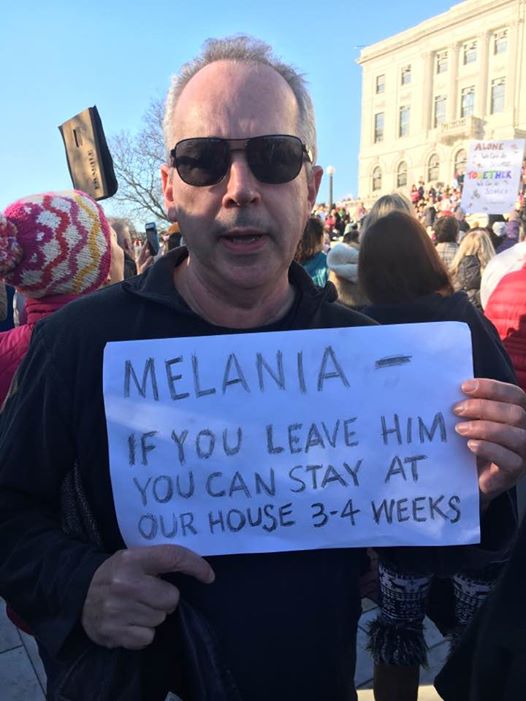 MELANIA –
IF YOU LEAVE HIM
YOU CAN STAY AT
OUR HOUSE 3-4 WEEKS
ALONE
We Can do
TOGETHER
We can do